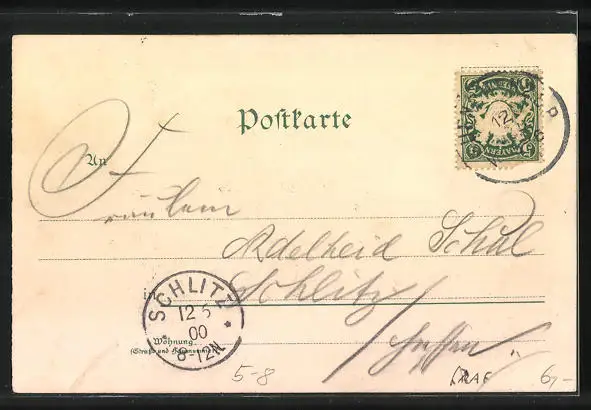 Postkarte
5 BAYERN 5
12
An
Fräulein
Adelheid Schül
in Schlitz
Hessen
SCHLITZ
12 5
00
8-12N
Wohnung
(Straße und Hausnummer)
5-8 6,-